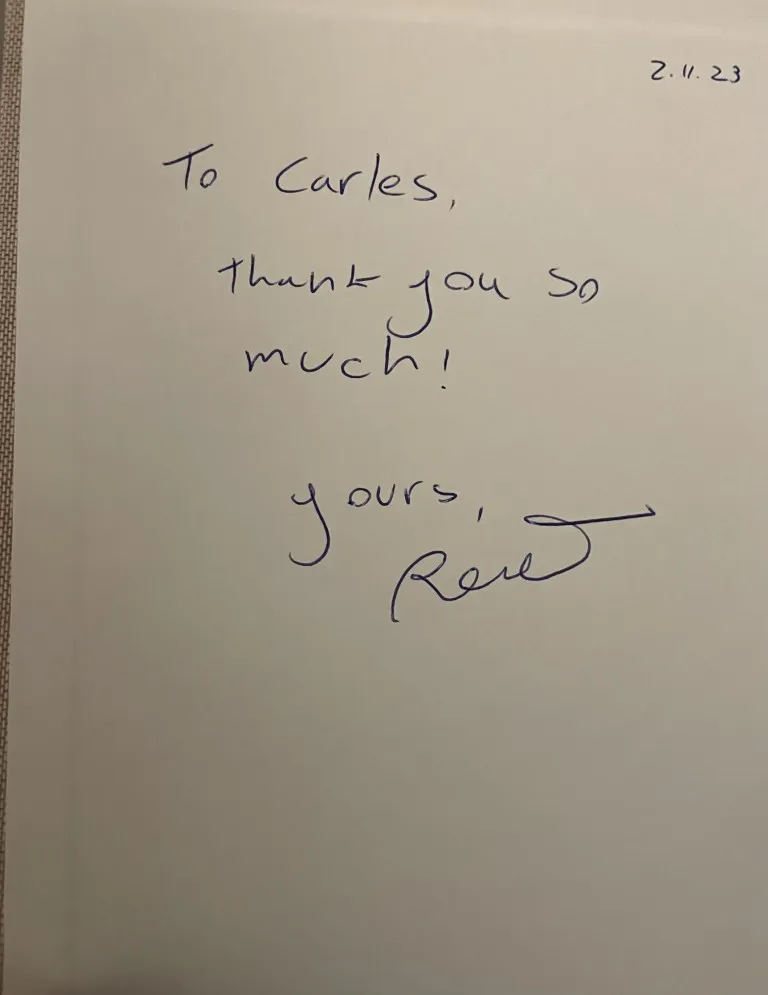 2.11.23
To Carles,
thank you so
much!
yours,